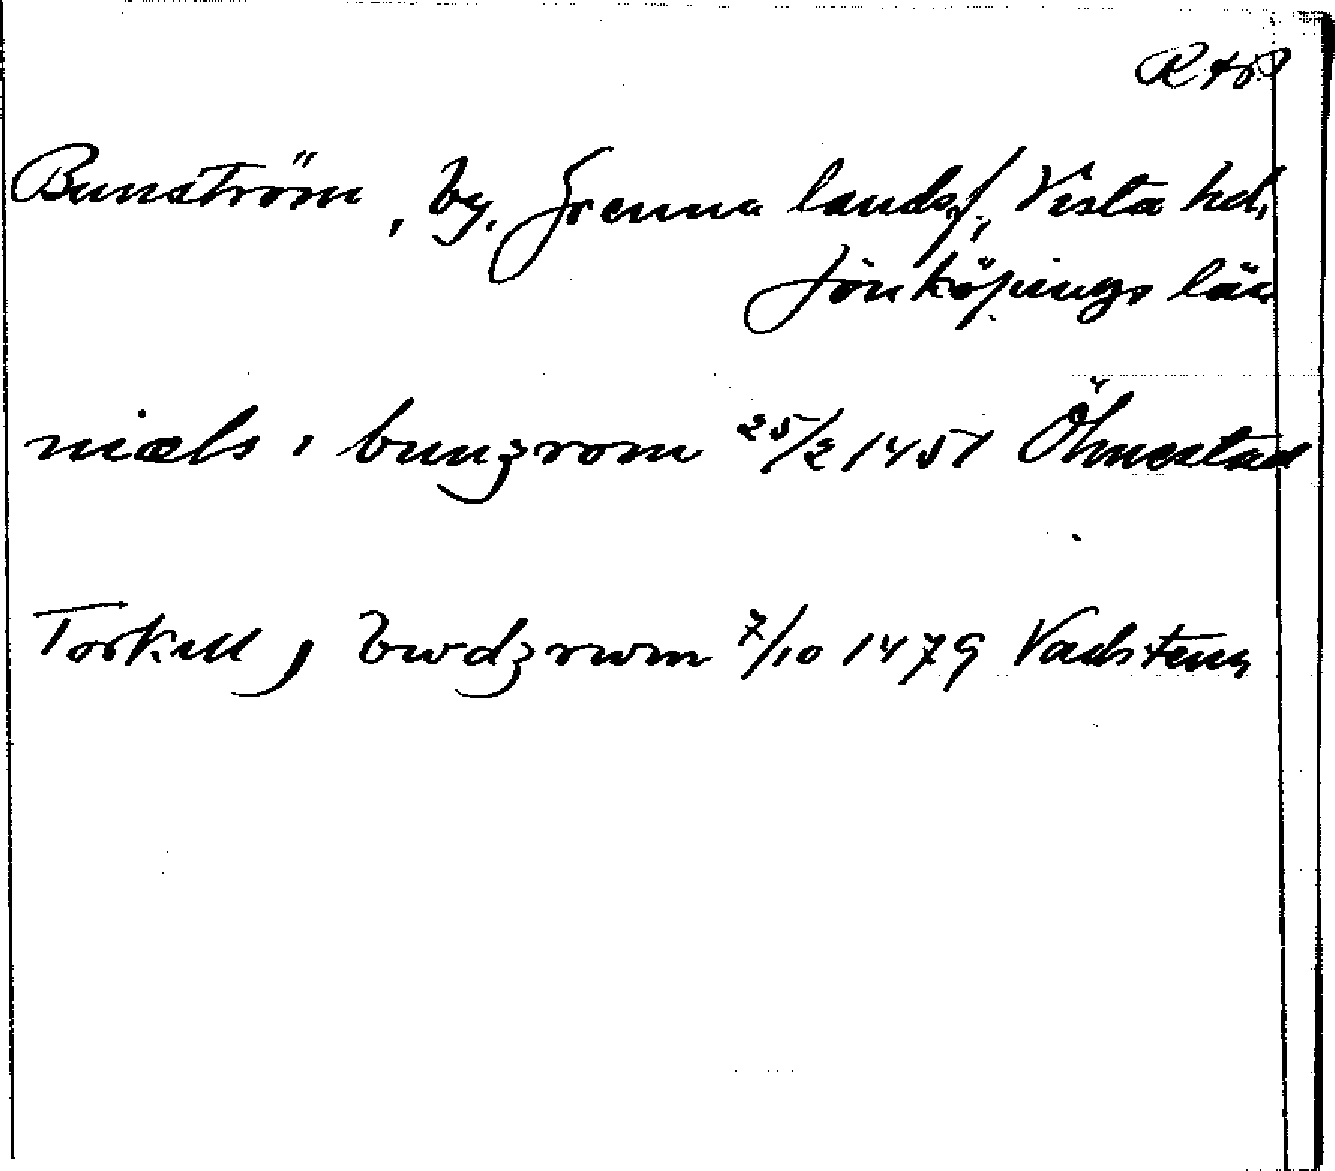 RAP
Bunström, by, Grenna landsf, Vista hd,
Jönköpings län
niæls i bunzrom 25/2 1451 Ölmestad
Torkell j bwdzrwm 7/10 1479 Vadstena